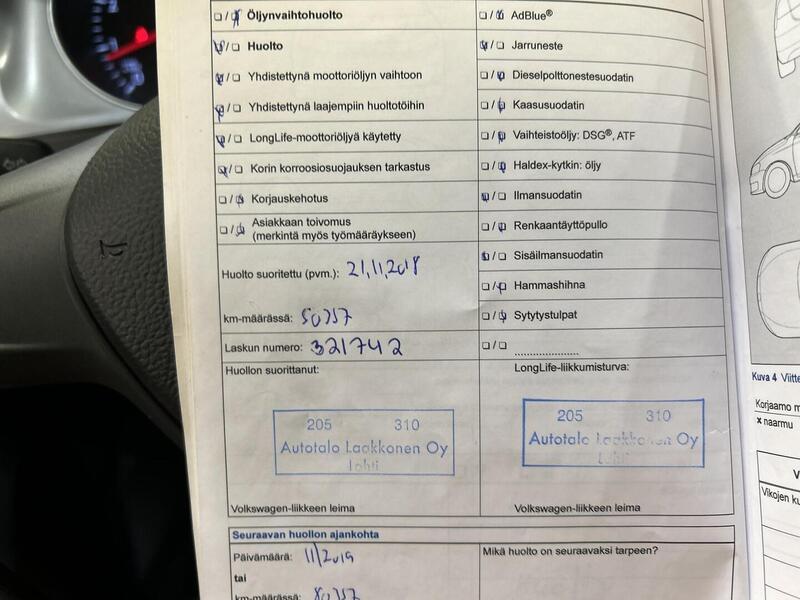 ☐ / ☒ Öljynvaihtohuolto
☒ / ☐ Huolto
☒ / ☐ Yhdistettynä moottoriöljyn vaihtoon
☒ / ☐ Yhdistettynä laajempiin huoltotöihin
☒ / ☐ LongLife-moottoriöljyä käytetty
☒ / ☐ Korin korroosiosuojauksen tarkastus
☐ / ☒ Korjauskehotus
☐ / ☒ Asiakkaan toivomus
(merkintä myös työmääräykseen)
Huolto suoritettu (pvm.): 21.11.2018
km-määrässä: 50357
Laskun numero: 321742
Huollon suorittanut:
205 310
Autotalo Laakkonen Oy
Lahti
Volkswagen-liikkeen leima
☐ / ☒ AdBlue®
☒ / ☐ Jarruneste
☐ / ☒ Dieselpolttonestesuodatin
☐ / ☒ Kaasusuodatin
☐ / ☒ Vaihteistoöljy: DSG®, ATF
☐ / ☒ Haldex-kytkin: öljy
☒ / ☐ Ilmansuodatin
☐ / ☒ Renkaantäyttöpullo
☒ / ☐ Sisäilmansuodatin
☐ / ☒ Hammashihna
☐ / ☒ Sytytystulpat
☐ / ☐ ....................
LongLife-liikkumisturva:
205 310
Autotalo Laakkonen Oy
Lahti
Volkswagen-liikkeen leima
Seuraavan huollon ajankohta
Päivämäärä: 11/2019
tai
km-määrässä: 80357
Mikä huolto on seuraavaksi tarpeen?
Kuva 4 Viitte
Korjaamo m
x naarmu
V
Vikojen ku